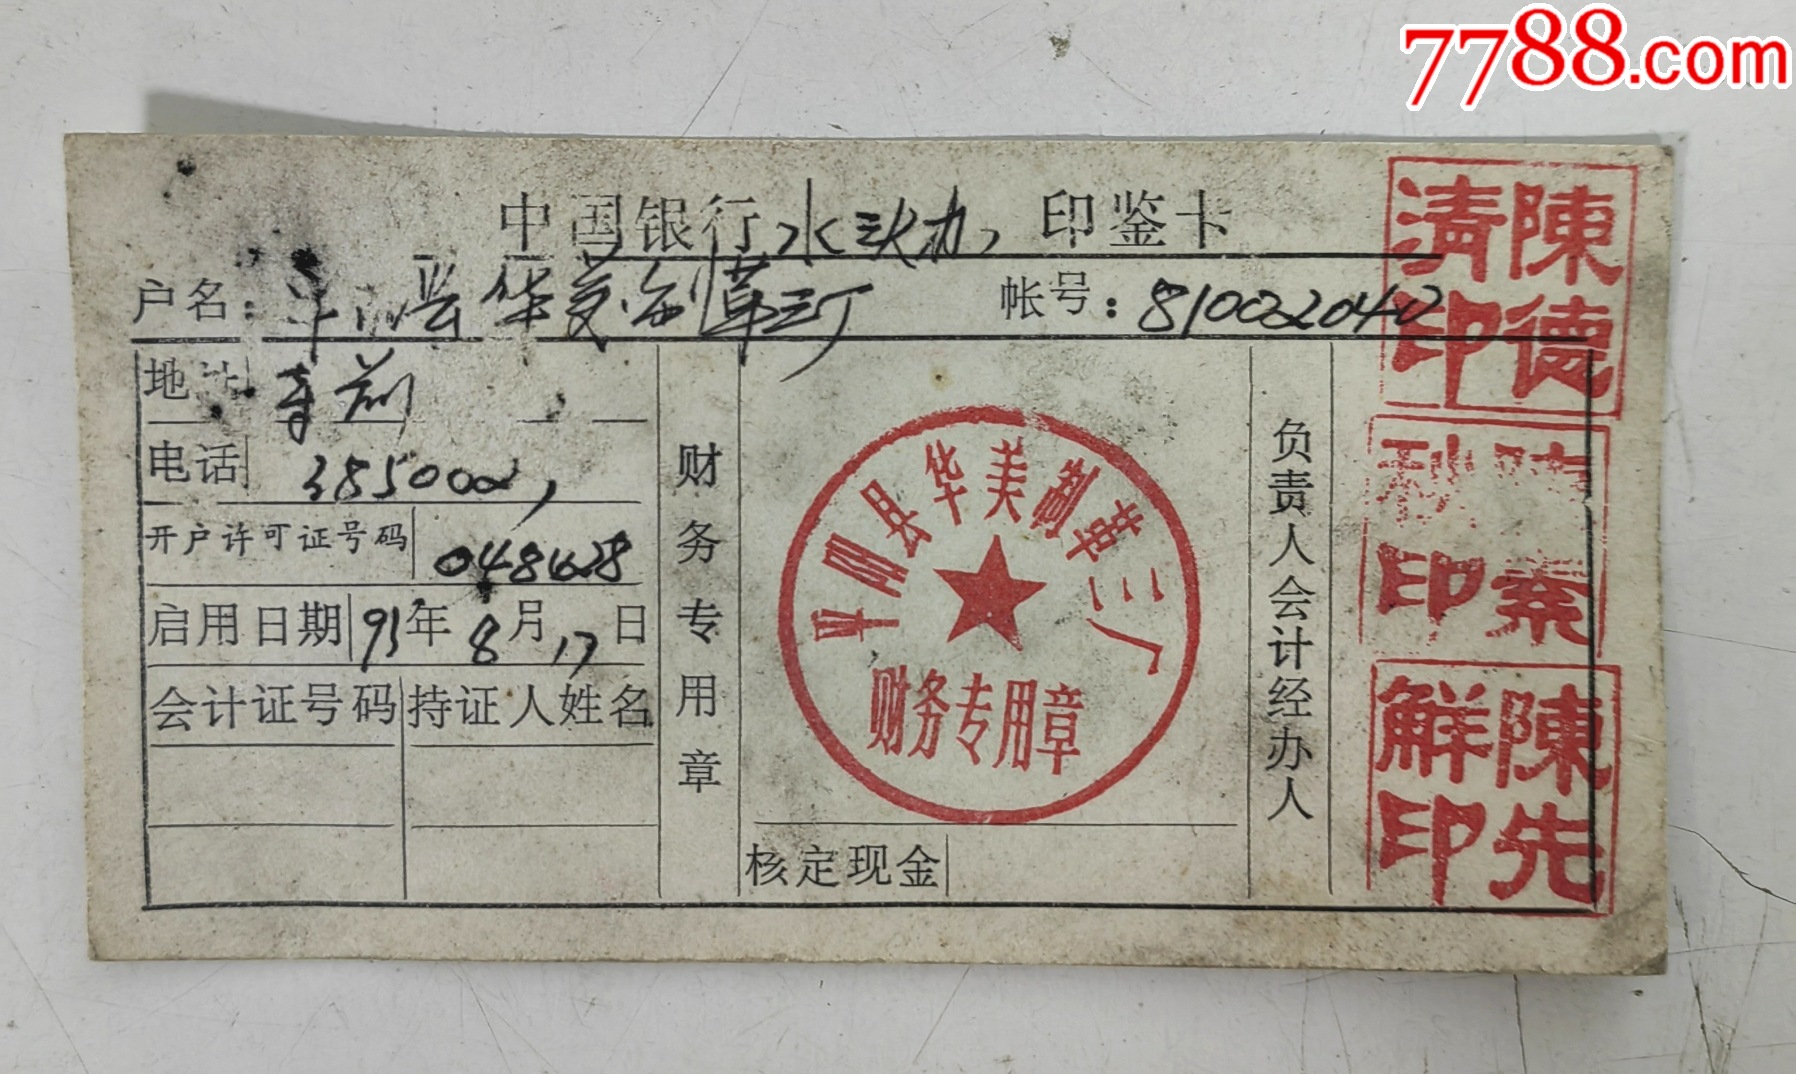 7788.com
中国银行水头办印鉴卡
户名：平阳县华美制革三厂 帐号：810022040
地址 寺前
电话 385002
开户许可证号码 048628
启用日期 93年8月17日
会计证号码 持证人姓名
财务专用章
平阳县华美制革三厂
财务专用章
核定现金
负责人会计经办人
陳德清印
印
陳先鮮印